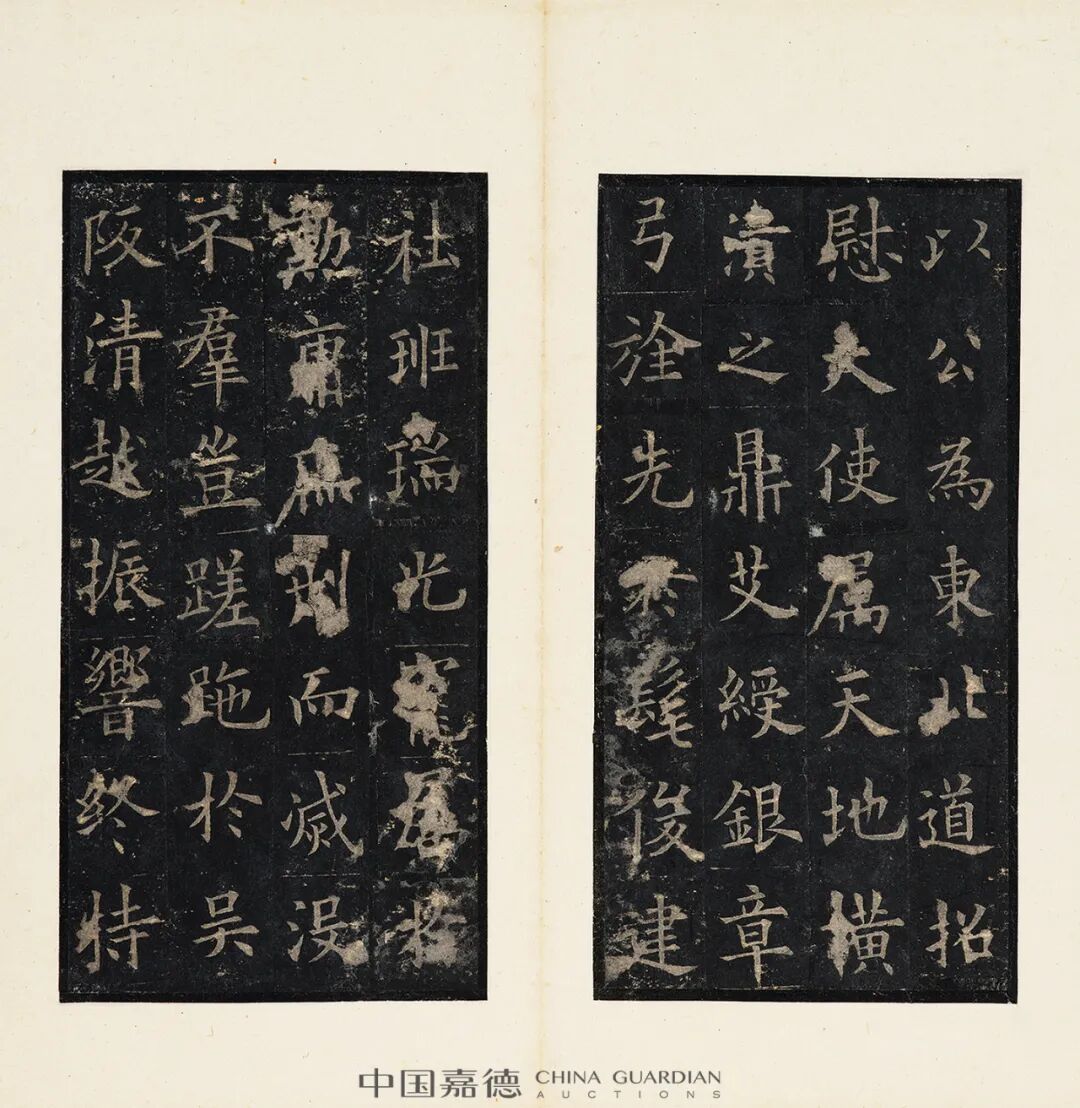 以公為東北道招
慰大使属天地橫
潰之鼎艾綬銀章
弓旌先於髦俊建
社班瑞光寵
勲庸而刑而滅没
不羣豈蹉跎於吴
阪清越振響終特
中国嘉德 CHINA GUARDIAN
AUCTIONS